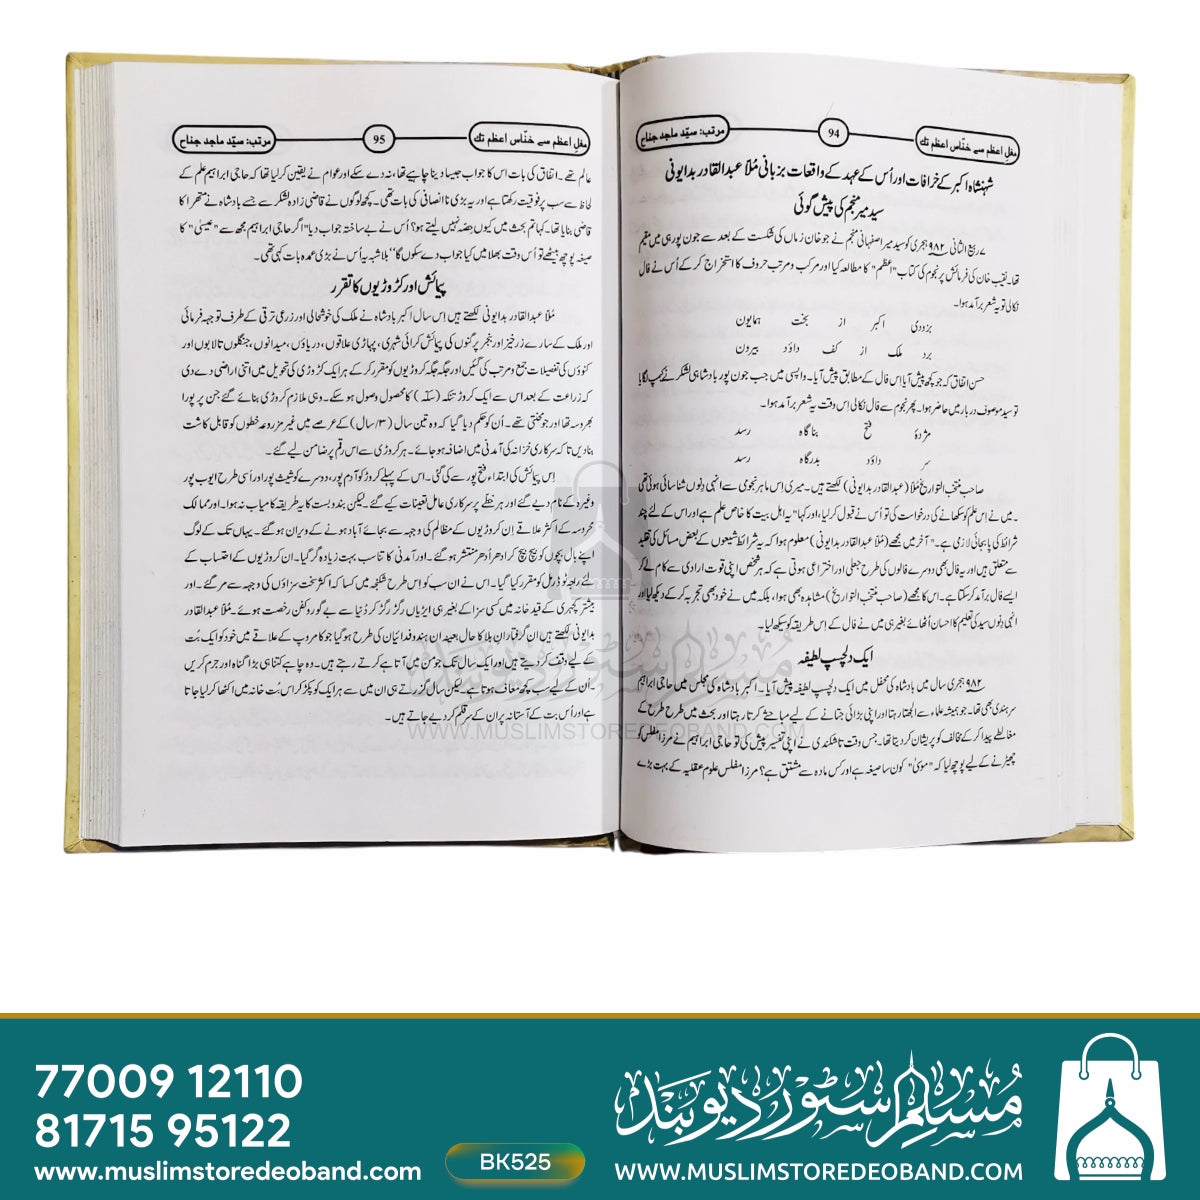 مغلِ اعظم سے خنّاس اعظم تک
94
مرتب: سیّد ماجد جناح
شہنشاہ اکبر کے خرافات اور اُس کے عہد کے واقعات بزبانی مُلاّ عبدالقادر بدایونی
سید میر منجم کی پیش گوئی
۷ ربیع الثانی ۹۸۲ ہجری کو سید میر اصفہانی منجم نے جو خان زماں کی شکست کے بعد سے جون پور ہی میں مقیم
تھا۔ نقیب خان کی فرمائش پر نجوم کی کتاب "اعظم" کا مطالعہ کیا اور مرکب و مرتب حروف کا استخراج کر کے اُس نے فال
نکالی تو یہ شعر برآمد ہوا۔
بزودی اکبر از بخت ہمایون
برد ملک از کف داؤد بیرون
حسن اتفاق کہ جو کچھ پیش آیا اس فال کے مطابق پیش آیا۔ واپسی میں جب جون پور بادشاہی لشکر نے کیمپ لگایا
تو سید موصوف دربار میں حاضر ہوا۔ پھر نجوم سے فال نکالی اِس وقت یہ شعر برآمد ہوا۔
مژدۂ فتح بناگاہ رسد
سر داؤد بدرگاہ رسد
صاحب منتخب التواریخ مُلاّ (عبدالقادر بدایونی) لکھتے ہیں۔ میری اِس ماہر نجومی سے انہی دِنوں شناسائی ہوئی تھی
۔ میں نے اِس علم کو سکھانے کی درخواست کی تو اُس نے قبول کر لیا، اور کہا "یہ اہل بیت کا خاص علم ہے اور اس کے لئے چند
شرائط کی پابجائی لازمی ہے۔" آخر میں مجھے (مُلاّ عبدالقادر بدایونی) معلوم ہوا کہ یہ شرائط شیعوں کے بعض مسائل کی تقلید
سے متعلق ہیں اور یہ فال بھی دوسرے فالوں کی طرح جعلی اور اختراعی ہوتی ہے کہ ہر شخص اپنی قوت ارادی سے کام لے کر
ایسے فال برآمد کر سکتا ہے۔ اس کا مجھے (صاحب منتخب التواریخ) مشاہدہ بھی ہوا، بلکہ میں نے خود بھی تجربہ کر کے دیکھ لیا اور
انہی دِنوں سید کی تعلیم کا احسان اُٹھائے بغیر ہی میں نے فال کے اِس طریقہ کو سیکھ لیا۔
ایک دلچسپ لطیفہ
۹۸۲ ہجری سال میں بادشاہ کی محفل میں ایک دلچسپ لطیفہ پیش آیا۔ اکبر بادشاہ کی مجلس میں حاجی ابراہیم
سرہندی بھی تھا۔ جو ہمیشہ علماء سے اُلجھتا رہتا اور اپنی بڑائی جتانے کے لیے مباحثے کرتا رہتا اور بحث میں طرح طرح کے
مغالطے پیدا کر کے مخالف کو پریشان کر دیتا تھا۔ جس وقت تاشکندی نے اپنی تفسیر پیش کی تو حاجی ابراہیم نے مرزا مفلس کو
چھیڑنے کے لیے پوچھ لیا کہ "موسیٰ" کون سا صیغہ ہے اور کس مادہ سے مشتق ہے؟ مرزا مفلس علوم عقلیہ کے بہت بڑے
مغلِ اعظم سے خنّاس اعظم تک
95
مرتب: سیّد ماجد جناح
عالم تھے۔ اتفاق کی بات اس کا جواب جیسا دینا چاہیے تھا، نہ دے سکے اور عوام نے یقین کر لیا تھا کہ حاجی ابراہیم علم کے
لحاظ سے سب پر فوقیت رکھتا ہے اور یہ بڑی نا انصافی کی بات تھی۔ کچھ لوگوں نے قاضی زادہ لشکر سے جسے بادشاہ نے متھرا کا
قاضی بنایا تھا۔ کہا تم بحث میں کیوں حِصّہ نہیں لیتے ہو؟ اُس نے بے ساختہ جواب دیا "اگر حاجی ابراہیم مجھ سے "عیسیٰ" کا
صیغہ پوچھ بیٹھے تو اُس وقت بھلا میں کیا جواب دے سکوں گا" بلاشبہ یہ اُس نے بڑی عمدہ بات کہی تھی۔
پیمائش اور کڑوڑیوں کا تقرر
مُلاّ عبدالقادر بدایونی لکھتے ہیں اِس سال اکبر بادشاہ نے ملک کی خوشحالی اور زرعی ترقی کے طرف توجہ فرمائی
اور ملک کے سارے زرخیز اور بنجر پرگنوں کی پیمائش کرائی شہری، پہاڑی علاقوں، دریاؤں، میدانوں، جنگلوں تالابوں اور
کنوؤں کی تفصیلات جمع و مرتب کی گئیں اور جگہ جگہ کروڑیوں کو مقرر کر کے ہر ایک کڑوڑی کی تحویل میں اتنی اراضی دے دی
کہ زراعت کے بعد اس سے ایک کروڑ تنکہ (سکّہ) کا محصول وصول ہو سکے۔ وہی ملازم کروڑی بنائے گئے جن پر پورا
بھروسہ تھا اور جو محنتی تھے۔ اُن کو حکم دیا گیا کہ وہ تین سال (۳/سال) کے عرصے میں غیر مزروعہ خطوں کو قابل کاشت
بنا دیں تاکہ سرکاری خزانہ کی آمدنی میں اضافہ ہو جائے۔ ہر کروڑی سے اس رقم پر ضامن لیے گئے۔
اِس پیمائش کی ابتداء فتح پور سے کی گئی۔ اس کے پہلے کروڑ کو آدم پور، دوسرے کو شیث پور اور اسی طرح ایوب پور
وغیرہ کے نام دیے گئے اور ہر خطے پر سرکاری عامل تعینات کیے گئے۔ لیکن بندوبست کا یہ طریقہ کامیاب نہ ہوا۔ اور ممالک
محروسہ کے اکثر علاقے اِن کروڑیوں کے مظالم کی وجہ سے بجائے آباد ہونے کے ویران ہو گئے۔ یہاں تک کے لوگ
اپنے بال بچوں کو بیچ بیچ کر ادھر اُدھر منتشر ہو گئے۔ اور آمدنی کا تناسب بہت زیادہ گر گیا۔ ان کروڑیوں کے احتساب کے
لئے راجہ ٹوڈرمل کو مقرر کیا گیا۔ اس نے ان سب کو اِس طرح شکنجہ میں کسا کہ اکثر سخت سزاؤں کی وجہ سے مر گئے۔ اور
بیشتر کچہری کے قید خانہ میں کسی سزا کے بغیر ہی ایڑیاں رگڑ رگڑ کر دُنیا سے بے گور و کفن رخصت ہوئے۔ مُلاّ عبدالقادر
بدایونی لکھتے ہیں ان گرفتارانِ بلا کا حال بعینہٖ ان ہندو فدائیان کی طرح ہو گیا جو کامروپ کے علاقے میں خود کو ایک بُت
کے لیے وقف کر دیتے ہیں اور ایک سال تک جو من میں آتا ہے کرتے رہتے ہیں۔ وہ چاہے کتنا ہی بڑا گناہ اور جرم کریں
۔ اُن کے لیے سب کچھ معاف ہوتا ہے۔ لیکن سال گزرتے ہی ان میں سے ہر ایک کو پکڑ کر اس بُت خانہ میں اکٹھا کر لیا جاتا
ہے اور اُس بت کے آستانہ پر ان کے سر قلم کر دیے جاتے ہیں۔
مُسلم سٹور دیوبند
WWW.MUSLIMSTOREDEOBAND.COM
77009 12110
81715 95122
www.muslimstoredeoband.com
BK525
مُسلم سٹور دیوبند
WWW.MUSLIMSTOREDEOBAND.COM